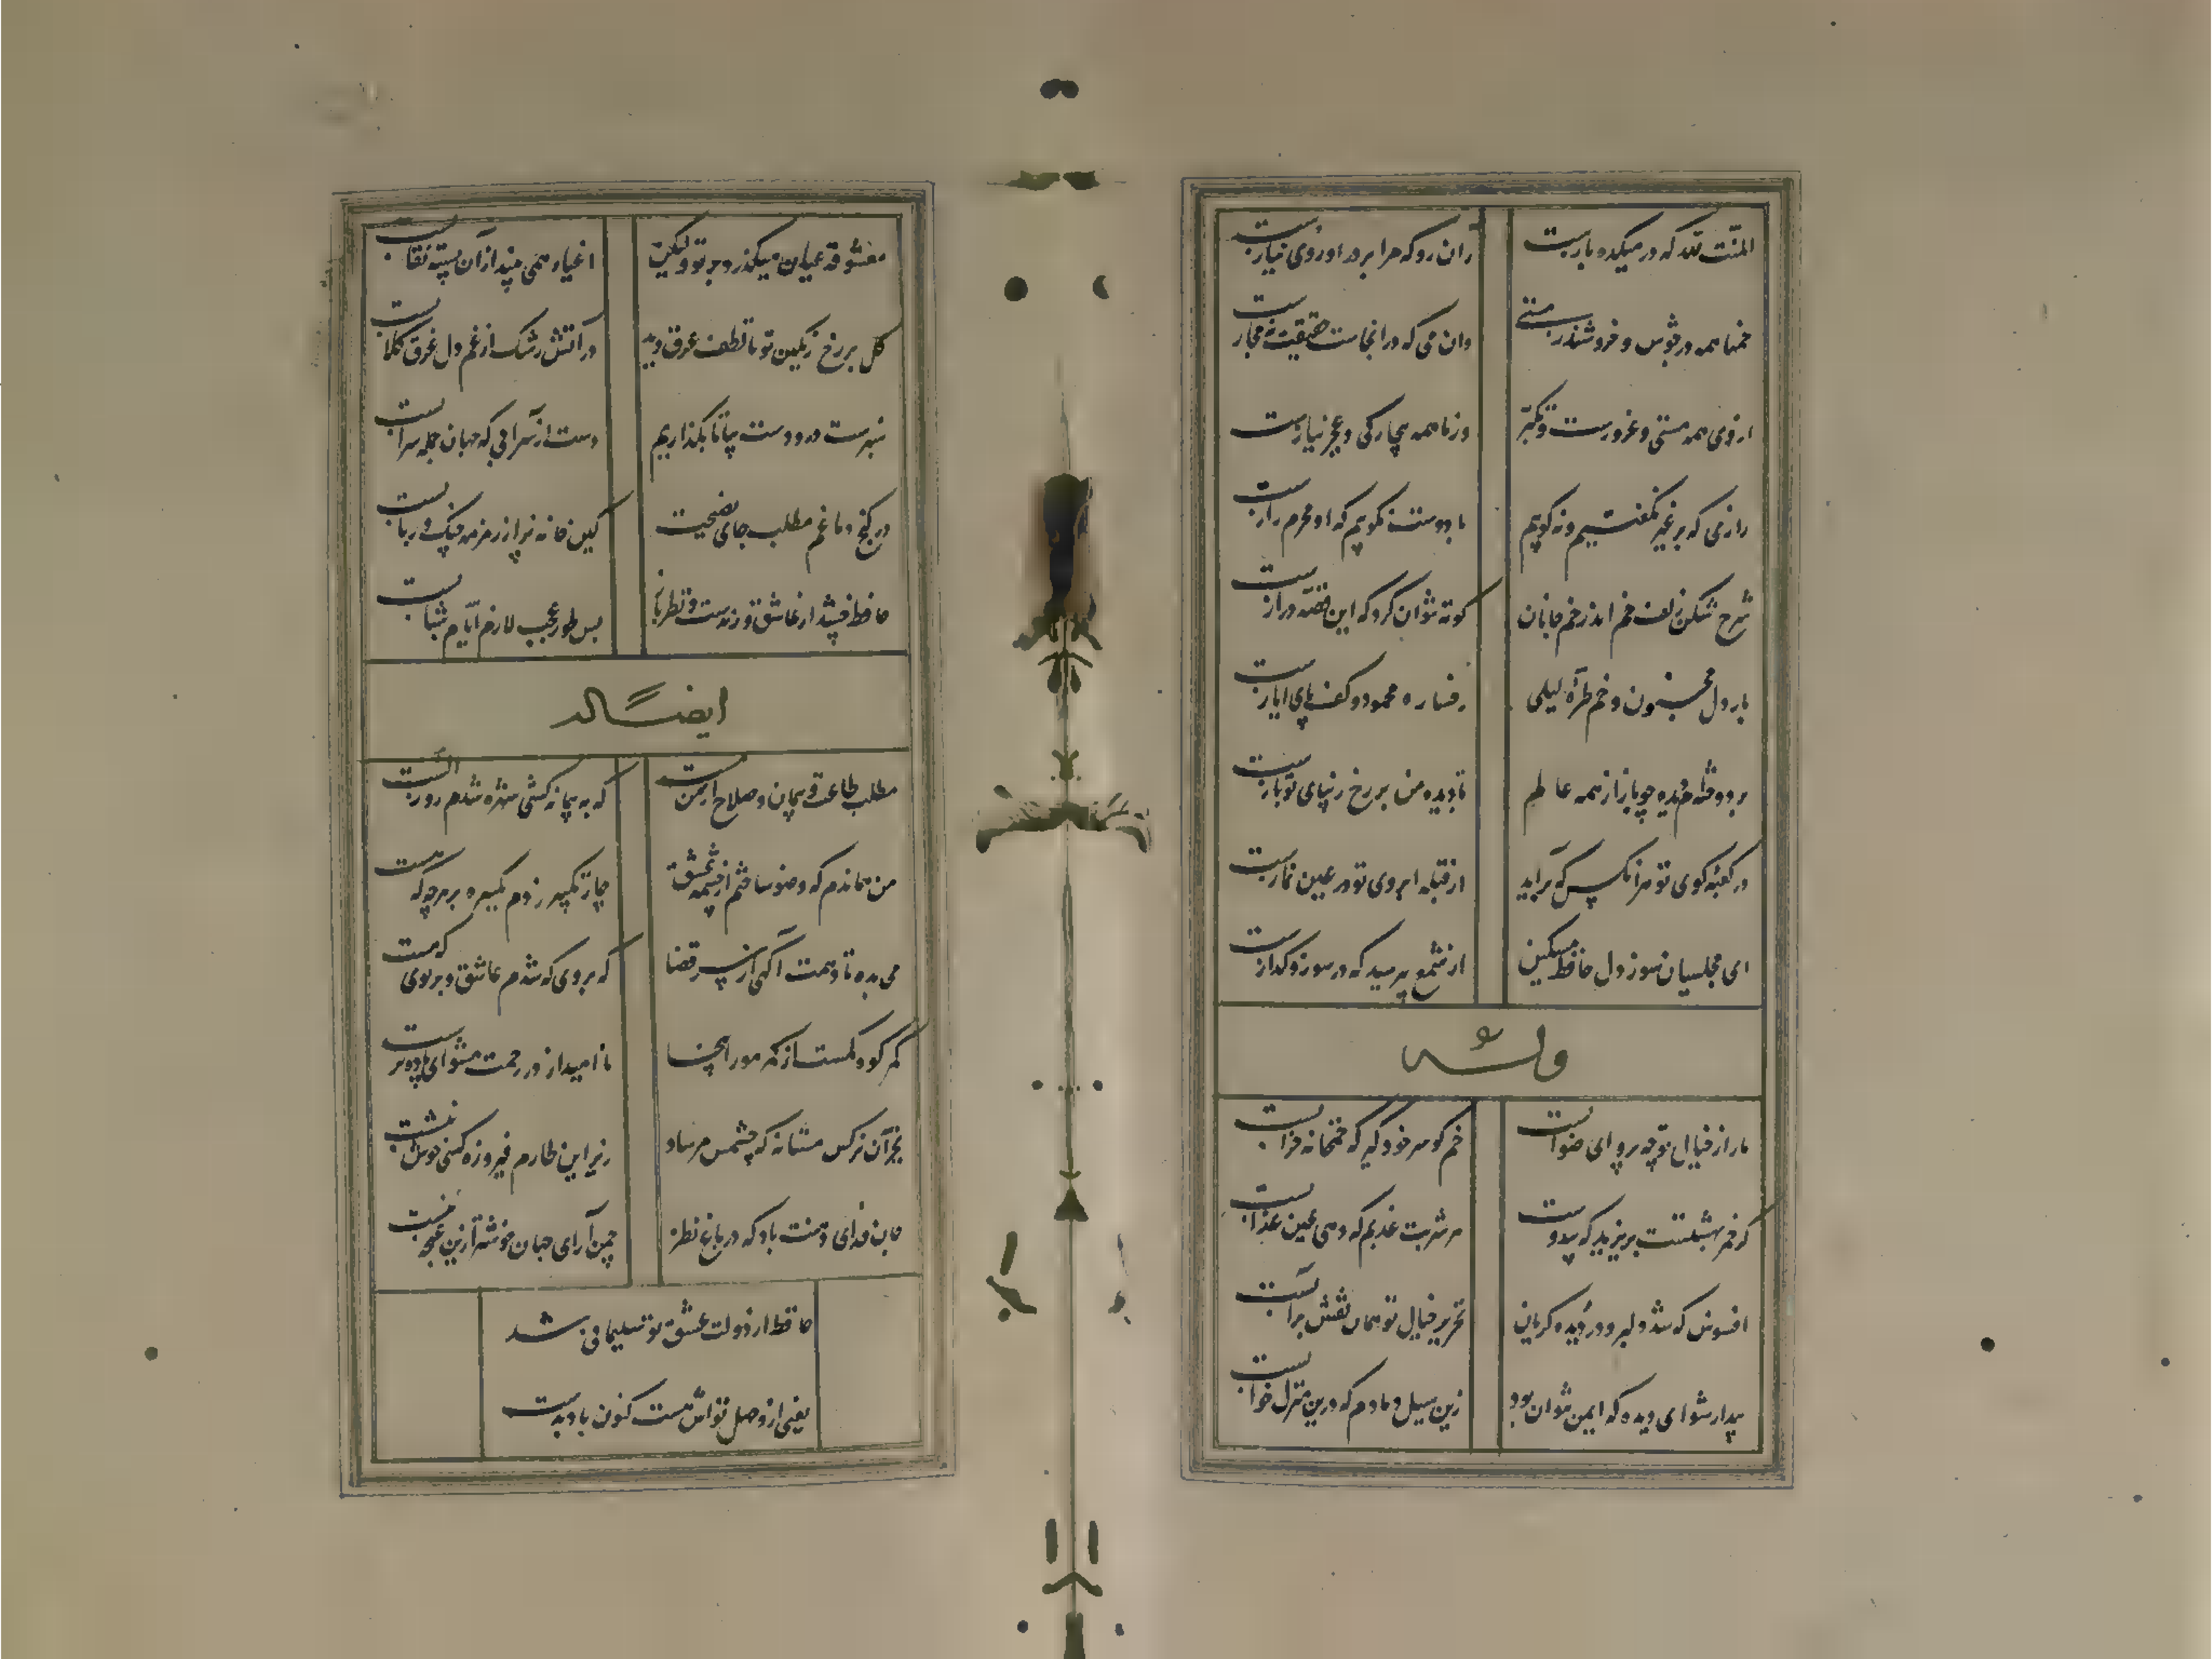 المنّت لله که در میکده بازست
زان رو که مرا بر در او روی نیازست
خمها همه در جوش و خروشند ز مستی
وان می که در انجاست حقیقت نه مجازست
از وی همه مستی و غرورست و تکبّر
وز ما همه بیچارگی و عجز نیازست
رازی که بر غیر نگفتیم و نه گویم
با دوست نگویم که او محرم رازست
شرح شکن زلف خم اندر خم جانان
کوته نتوان کرد که این قصّه درازست
بار دل مجنون و خم طرّه لیلی
رخساره محمود و کف پای ایازست
بر دوخته‌ام دیده چو باز از همه عالم
تا دیده من بر رخ زیبای تو بازست
در کعبه کوی تو هر آنکس که برآید
از قبله ابروی تو در عین نمازست
ای مجلسیان سوز دل حافظ مسکین
از شمع بپرسید که در سوز و گدازست
وله
ما را ز خیال تو چه پروای شرابست
خم گو سر خود گیر که خمخانه خرابست
گر خمر بهشتست بریزید که بیدوست
هر شربت عذبم که دهی عین عذابست
افسوس که شد دلبر و در دیده گریان
تحریر خیال تو همان نقش برآبست
بیدار شو ای دیده که ایمن نتوان بود
زین سیل دمادم که درین منزل خوابست
معشوقه عیان میگذرد بر تو ولیکن
اغیار همی بیند از آن بسته نقابست
گل بر رخ رنگین تو تا لطف عرق دید
در آتش رشک از غم دل غرق گلابست
سبزست در و دشت بیا تا بگذاریم
دست از سرآبی که جهان جمله سرابست
در کنج دماغم مطلب جای نصیحت
کین خانه پر از زمزمه چنگ و ربابست
حافظ چه شد ار عاشق و رندست و نظرباز
بس طور عجب لازم ایّام شبابست
ایضاً له
مطلب طاعت و پیمان و صلاح از من مست
که به پیمانه کشی شهره شدم روز الست
من هماندم که وضو ساختم از چشمه عشق
چار تکبیر زدم یکسره بر هر چه که هست
می بده تا دهمت آگهی از سر قضا
که بروی که شدم عاشق و بر بوی که مست
کمر کوه کمست از کمر مور اینجا
ناامید از در رحمت مشو ای باده پرست
بجز آن نرگس مستانه که چشمش مرساد
زیر این طارم فیروزه کسی خوش ننشست
جان فدای دهنت باد که در باغ نظر
چمن آرای جهان خوشتر ازین غنچه نبست
حافظ از دولت عشق تو سلیمانی شد
یعنی از وصل تواش نیست کنون باد بدست